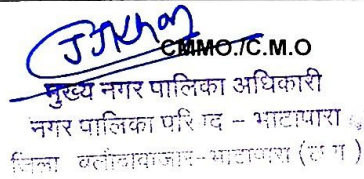 JJKhan
CMMO./C.M.O
मुख्य नगर पालिका अधिकारी
नगर पालिका परि द – भाटापारा
जिला बलौदाबाजार-भाटापारा (छ ग )